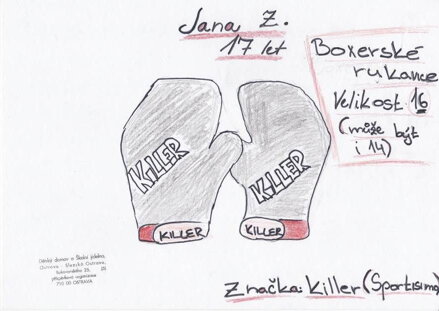 Jana Z.
17 let
Boxerské
rukavice
Velikost 16
(může být
i 14)
KILLER
KILLER
KILLER
KILLER
Dětský domov a Školní jídelna,
příspěvková organizace
710 00 OSTRAVA
Značka: Killer (Sportisimo)